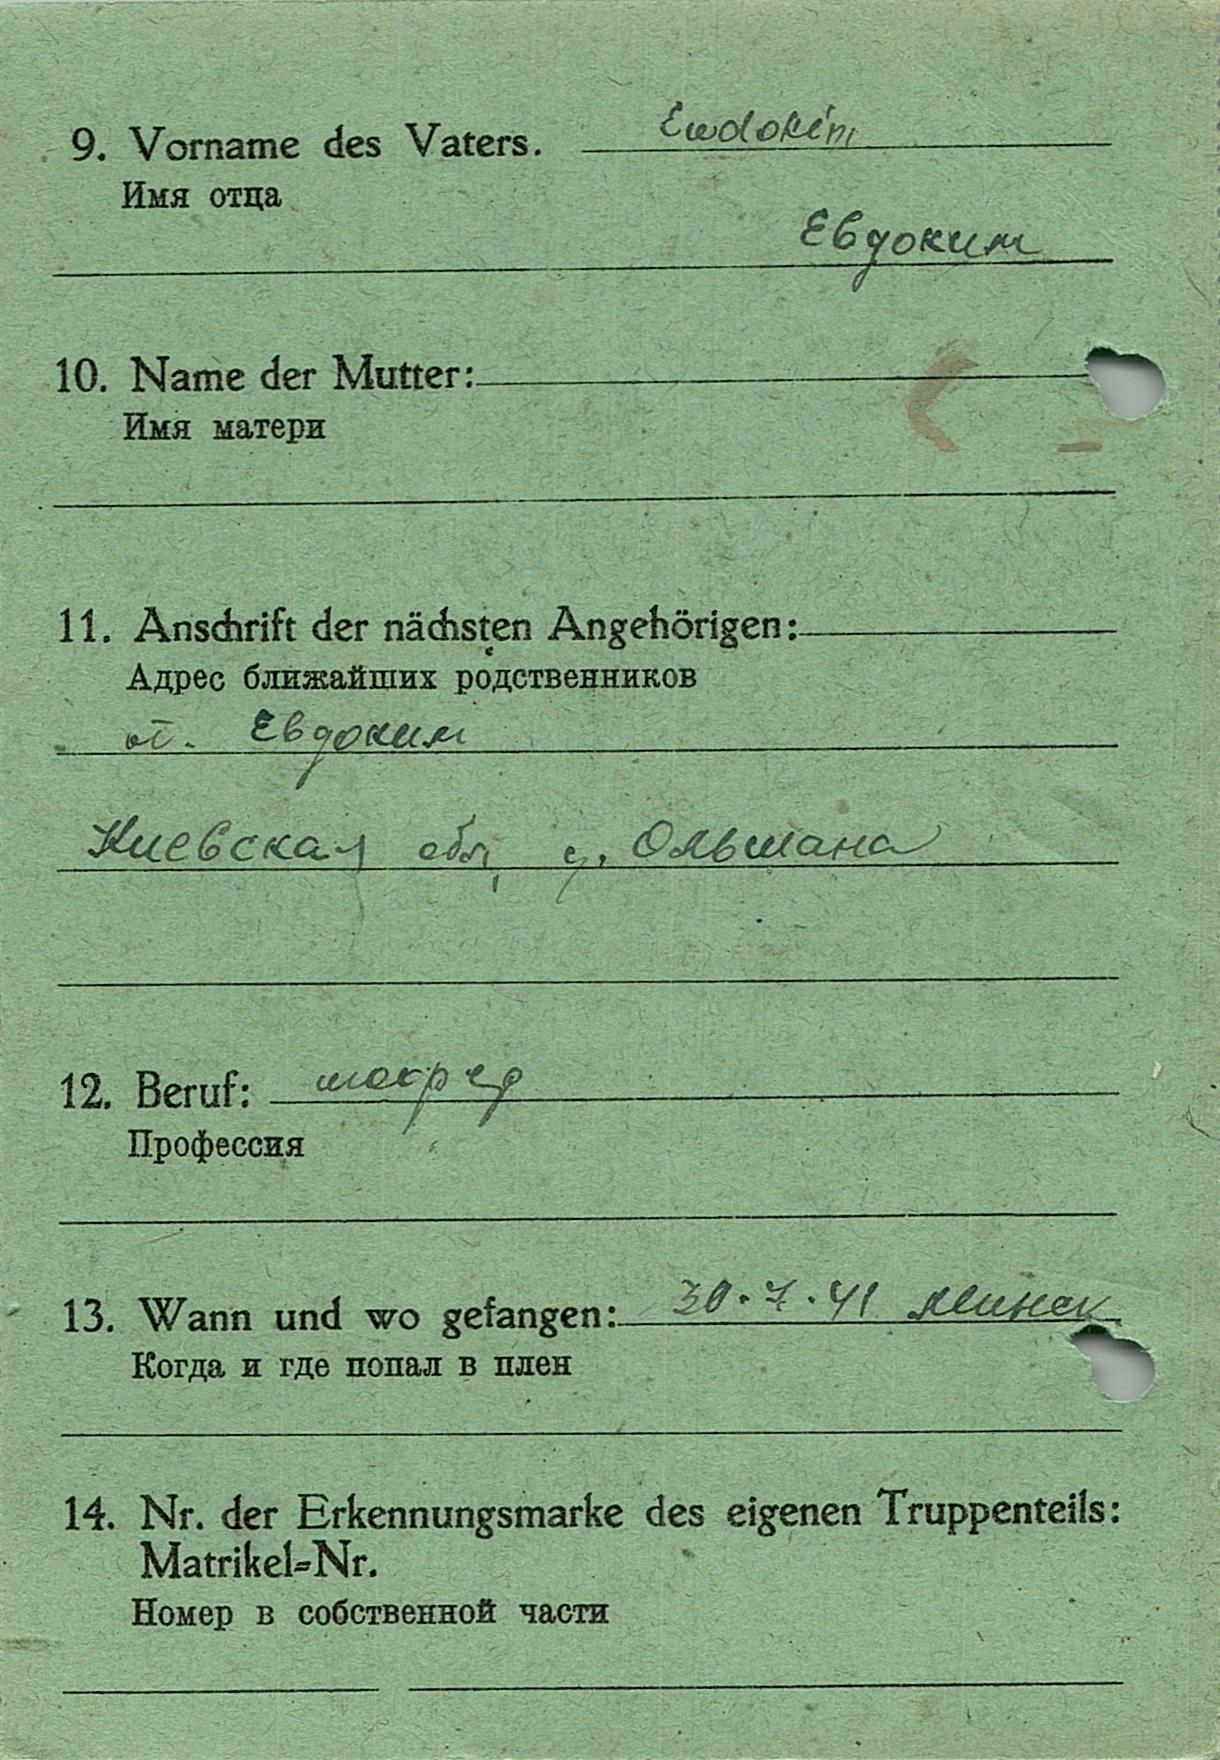 9. Vorname des Vaters. Ewdokim
Имя отца
Евдоким
10. Name der Mutter:
Имя матери
11. Anschrift der nächsten Angehörigen:
Адрес ближайших родственников
от. Евдоким
Киевская обл, с. Ольшана
12. Beruf: шофер
Профессия
13. Wann und wo gefangen: 30.7.41 Минск
Когда и где попал в плен
14. Nr. der Erkennungsmarke des eigenen Truppenteils:
Matrikel-Nr.
Номер в собственной части